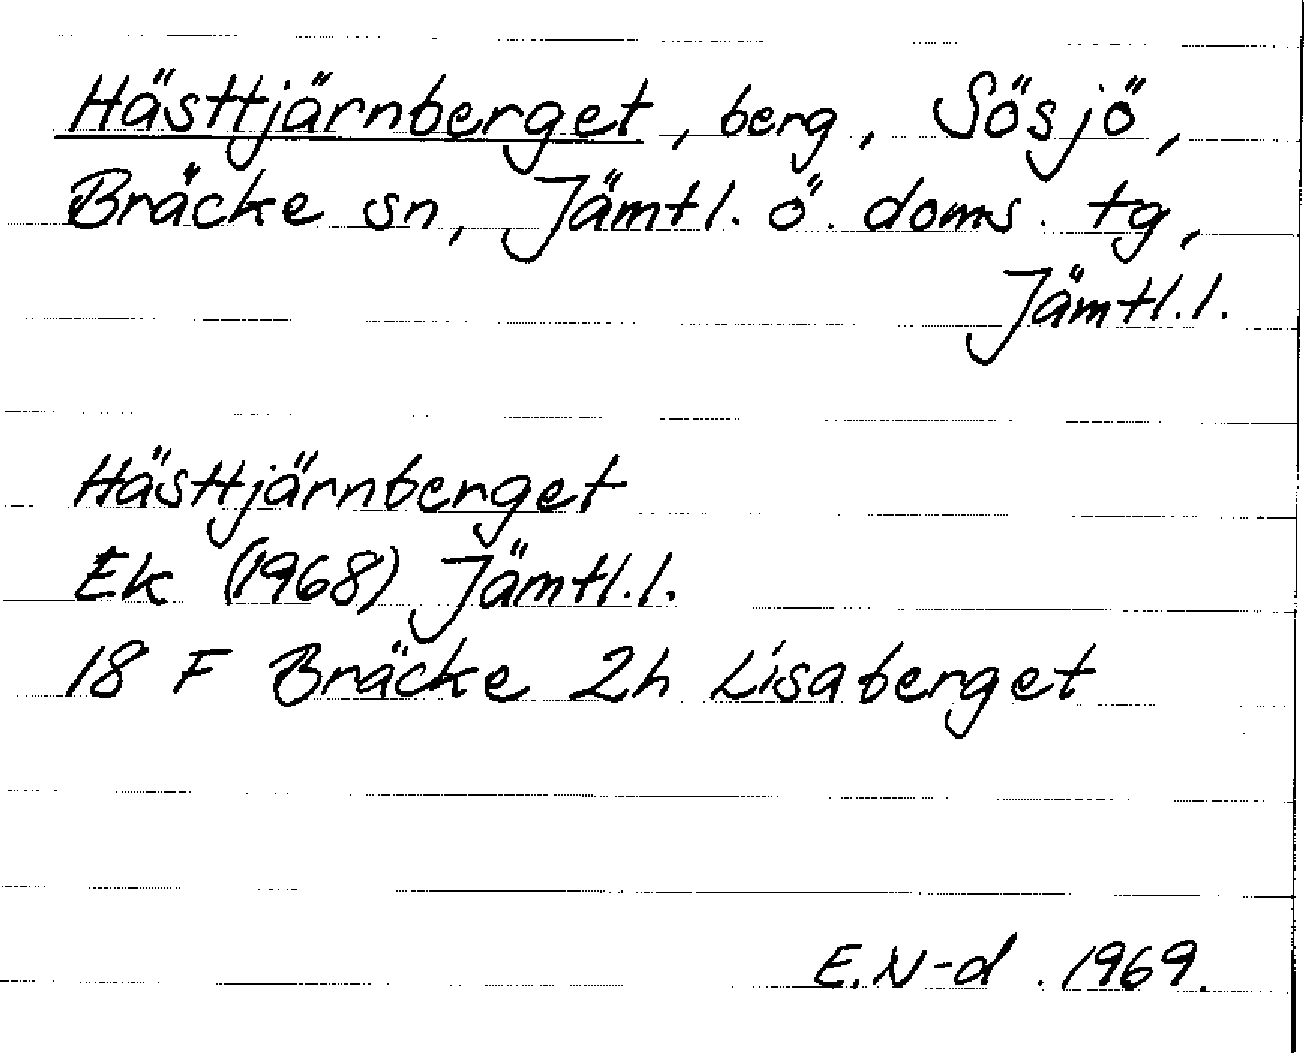 Hästtjärnberget, berg, Sösjö,
Bräcke sn, Jämtl. ö. doms. tg,
Jämtl.l.
Hästtjärnberget
Ek (1968) Jämtl.l.
18 F Bräcke 2h Lisaberget
E.N-d. 1969.